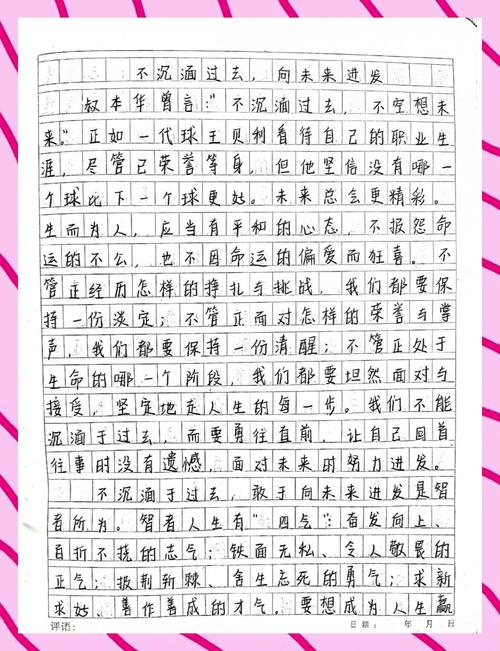 不沉湎过去，向未来进发
叔本华曾言："不沉湎过去，不空想未
来。"正如一代球王贝利看待自己的职业生
涯，尽管已荣誉等身，但他坚信没有哪一
个球比下一个球更好。未来总会更精彩。
生而为人，应当有平和的心态，不报怨命
运的不公，也不因命运的偏爱而狂喜。不
管正经历怎样的挣扎与挑战，我们都要保
持一份淡定；不管正面对怎样的荣誉与掌
声，我们都要保持一份清醒；不管正处于
生命的哪一个阶段，我们都要坦然面对与
接受，坚定地走人生的每一步。我们不能
沉湎于过去，而要勇往直前，让自己回首
往事时没有遗憾，面对未来时努力进发。
不沉湎于过去，敢于向未来进发是智
者所为。智者人生有"四气"：奋发向上、
百折不挠的志气；铁面无私、令人敬畏的
正气；披荆斩棘、舍生忘死的勇气；求新
求妙、善作善成的才气。要想成为人生赢
评语： 日期： 年 月 日